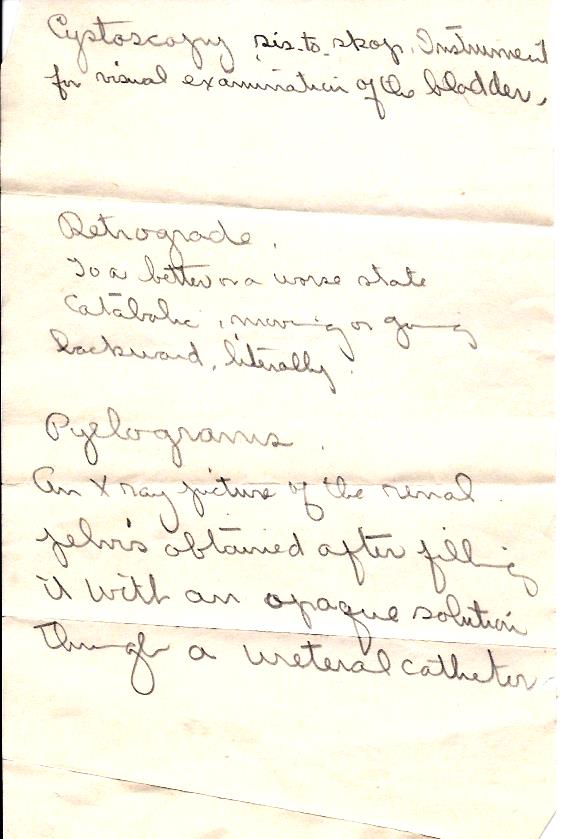 Cystoscopy sis-to-skop. Instrument
for visual examination of the bladder,
Retrograde.
To a better or a worse state
Catabolic, moving or going
backward, literally.
Pyelograms.
An X ray picture of the renal
pelvis obtained after filling
it with an opaque solution
through a ureteral catheter